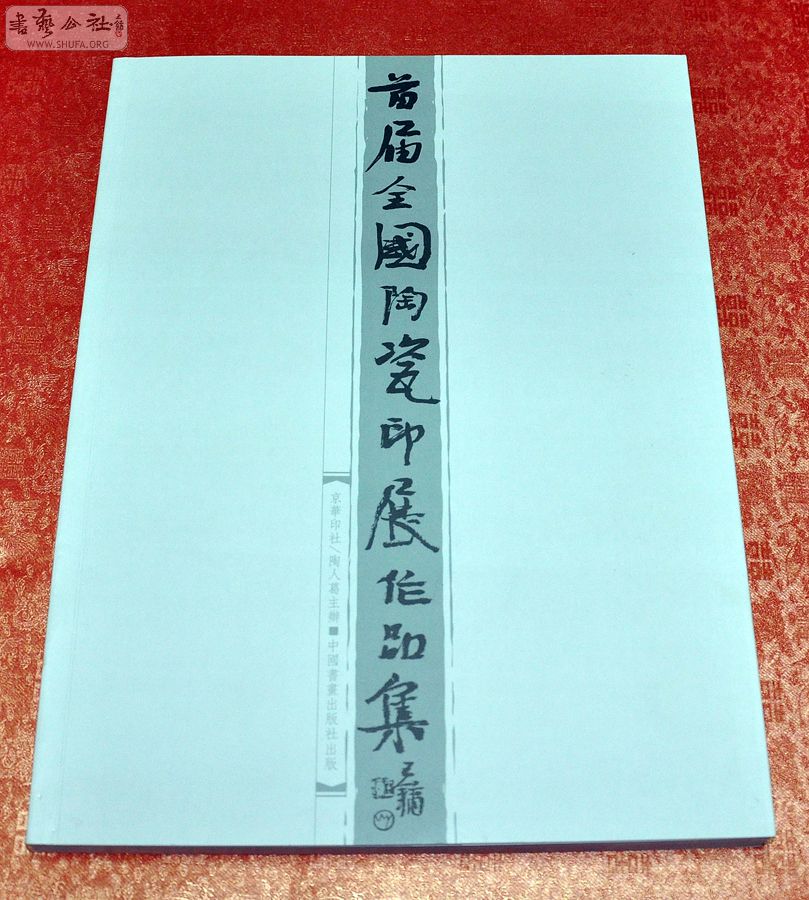 書藝公社
WWW.SHUFA.ORG
首届全國陶瓷印展作品集
王鏞
京華印社/陶人葛主辦■中國書畫出版社出版